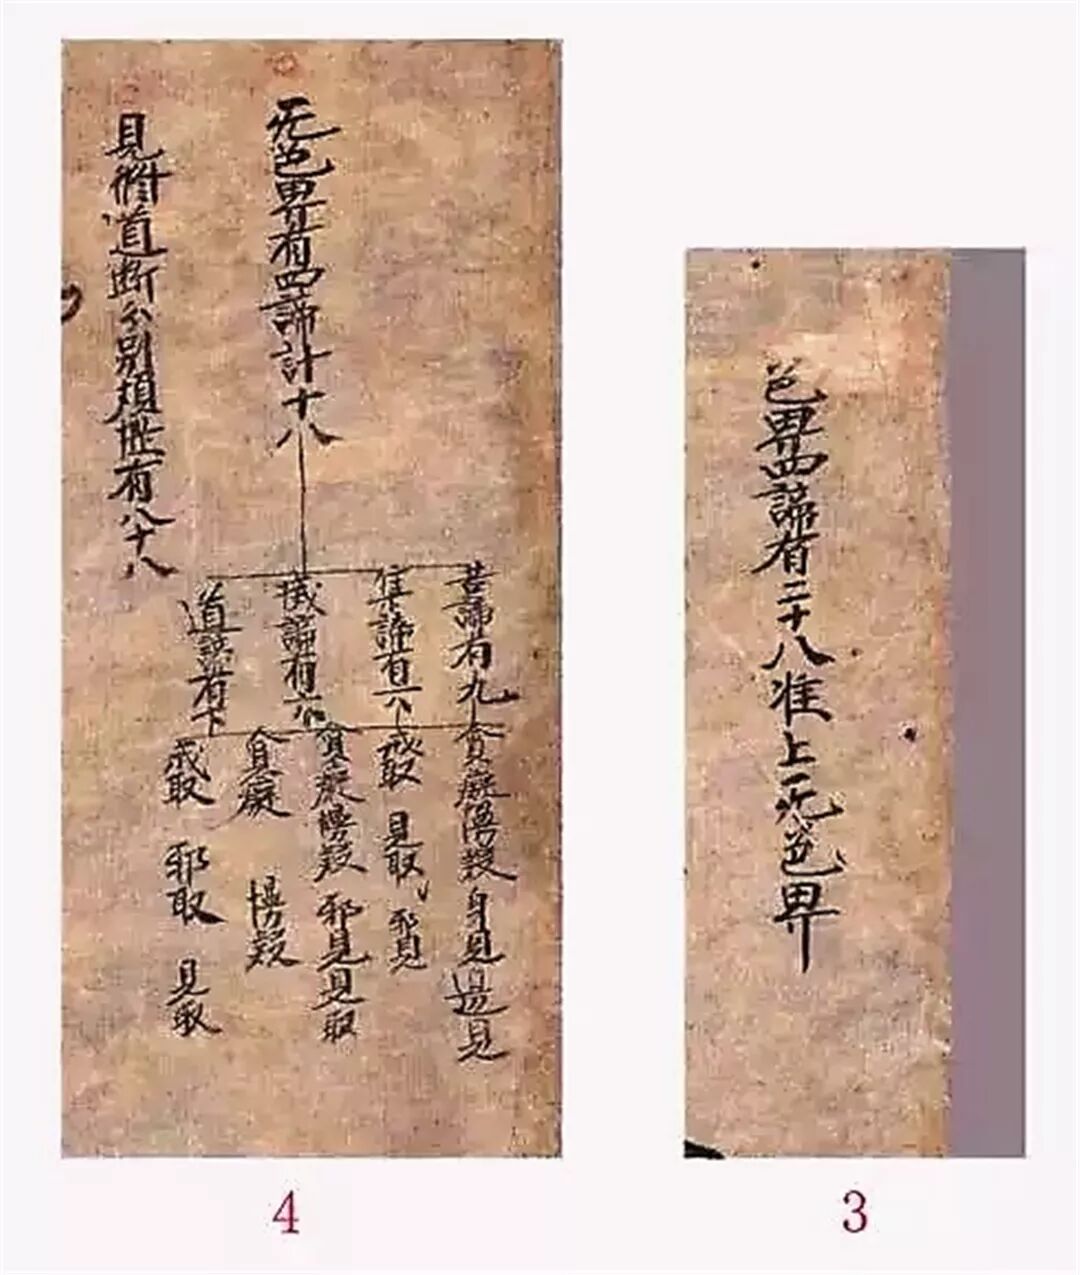 色界四諦有二十八准上无色界
3
无色界有四諦計十八
苦諦有九
集諦有六
滅諦有六
道諦有下
貪癡慢疑身見邊見
戒取 見取 邪見
貪癡慢疑邪見見取
貪癡 慢疑
戒取 邪取 見取
見修道断分別煩惟有八十八
4